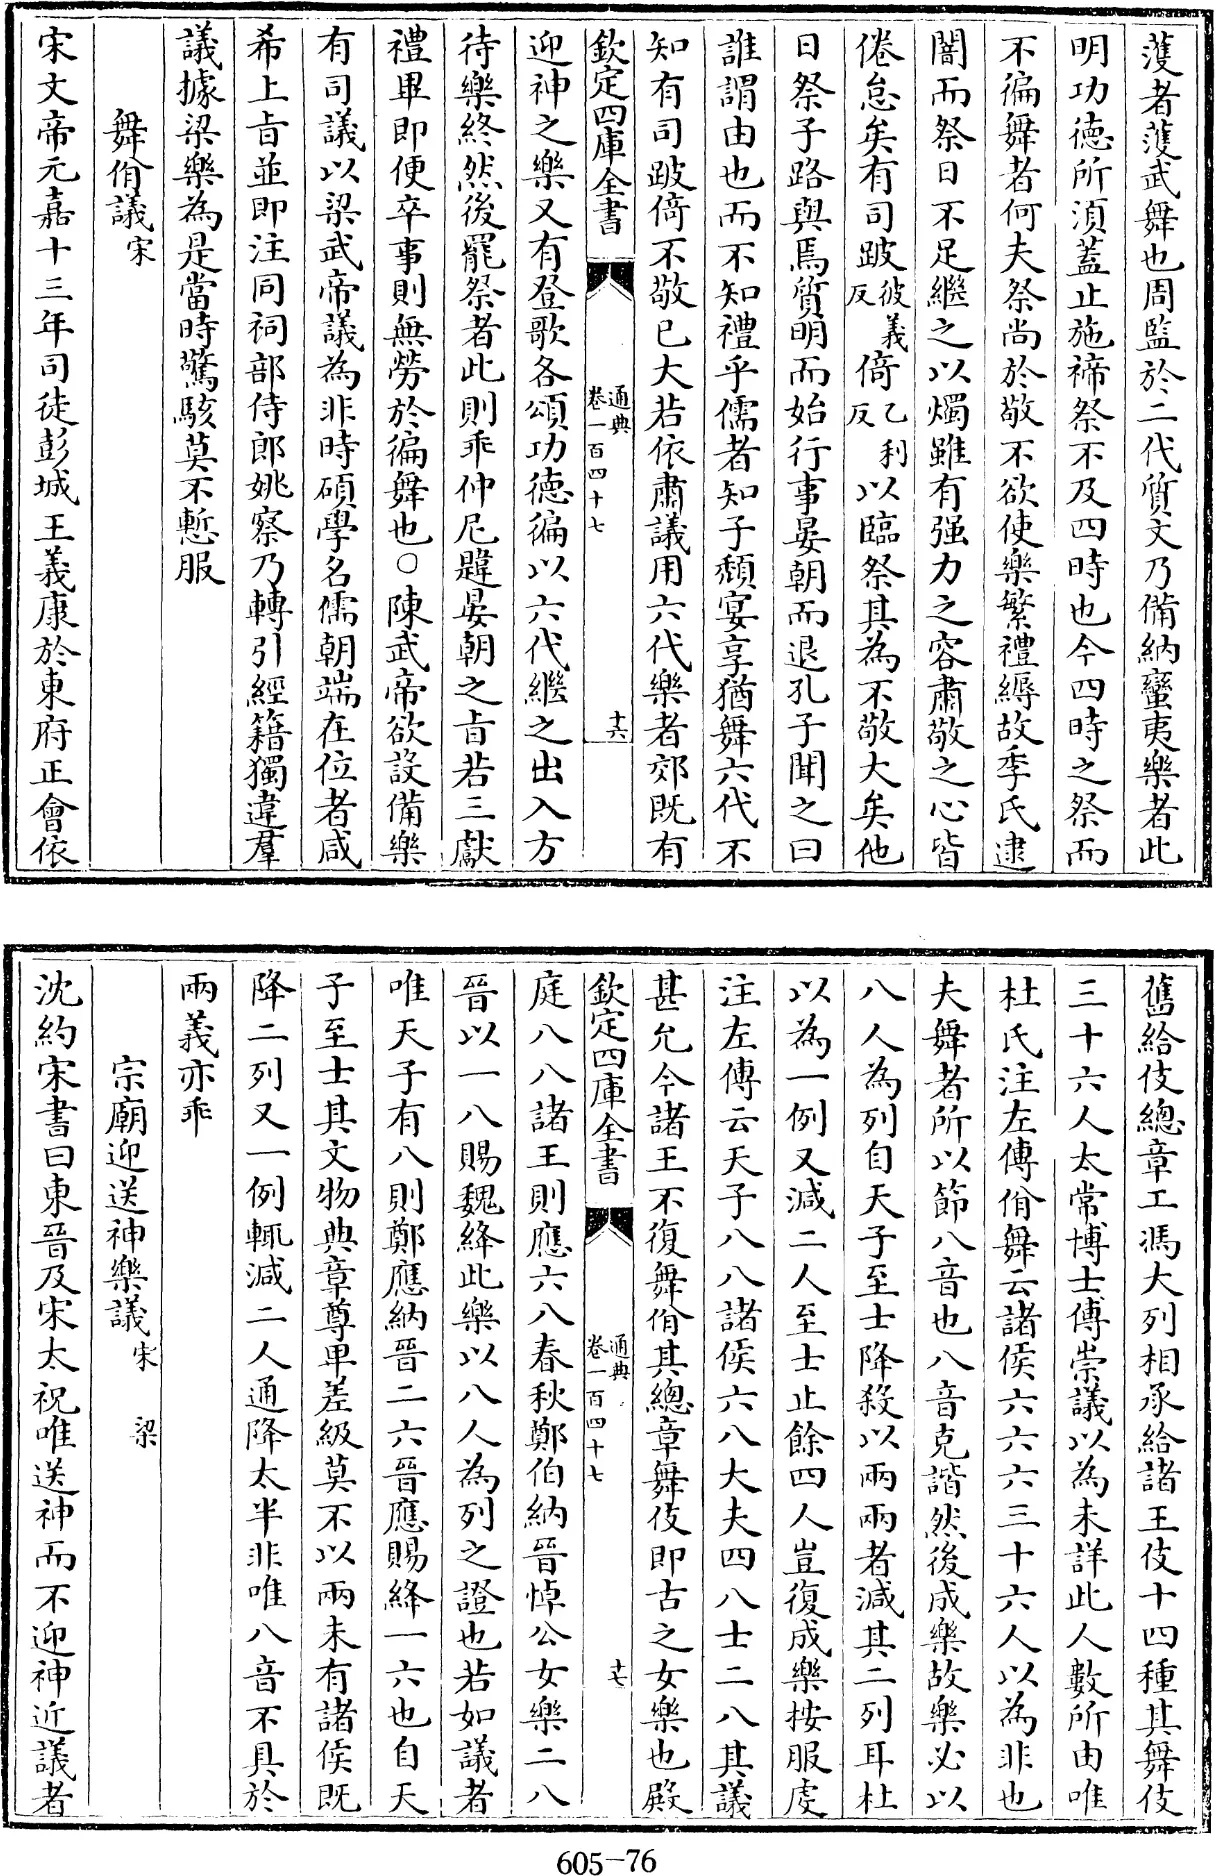 濩者濩武舞也周監於二代質文乃備納蠻夷樂者此
明功徳所須蓋止施禘祭不及四時也今四時之祭而
不徧舞者何夫祭尚於敬不欲使樂繁禮縟故季氏逮
闇而祭日不足繼之以燭雖有强力之容肅敬之心皆
倦怠矣有司跛彼義反倚乙利反以臨祭其為不敬大矣他
日祭子路與焉質明而始行事晏朝而退孔子聞之曰
誰謂由也而不知禮乎儒者知子頽宴享猶舞六代不
知有司跛倚不敬已大若依肅議用六代樂者郊既有
欽定四庫全書 通典卷一百四十七 十六
迎神之樂又有登歌各頌功德徧以六代繼之出入方
待樂終然後罷祭者此則乖仲尼韙晏朝之㫖若三獻
禮畢即便卒事則無勞於徧舞也○陳武帝欲設備樂
有司議以梁武帝議為非時碩學名儒朝端在位者咸
希上㫖並即注同祠部侍郎姚察乃轉引經籍獨違羣
議據梁樂為是當時驚駭莫不慙服
舞佾議宋
宋文帝元嘉十三年司徒彭城王義康於東府正會依
舊給伎總章工馮大列相承給諸王伎十四種其舞伎
三十六人太常博士傅崇議以為未詳此人數所由唯
杜氏注左傳佾舞云諸侯六六六三十六人以為非也
夫舞者所以節八音也八音克諧然後成樂故樂必以
八人為列自天子至士降殺以兩兩者減其二列耳杜
以為一例又減二人至士止餘四人豈復成樂按服虔
注左傳云天子八八諸侯六八大夫四八士二八其議
甚允今諸王不復舞佾其總章舞伎即古之女樂也殿
欽定四庫全書 通典卷一百四十七 十七
庭八八諸王則應六八春秋鄭伯納晉悼公女樂二八
晉以一八賜魏絳此樂以八人為列之證也若如議者
唯天子有八則鄭應納晉二六晉應賜絳一六也自天
子至士其文物典章尊卑差級莫不以兩未有諸侯既
降二列又一例輒減二人通降太半非唯八音不具於
兩義亦乖
宗廟迎送神樂議宋 梁
沈約宋書曰東晉及宋太祝唯送神而不迎神近議者
605-76